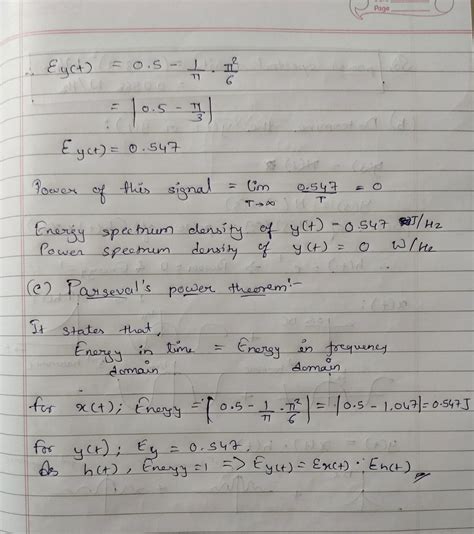 Page
∴ Ey(t) = 0.5 - 1/π . π²/6
= |0.5 - π/3|
Ey(t) = 0.547
Power of this signal = lim T→∞ 0.547/T = 0
Energy spectrum density of y(t) = 0.547 J/Hz
Power spectrum density of y(t) = 0 W/Hz
(c) Parseval's power theorem:-
It states that,
Energy in time domain = Energy in frequency domain
for x(t); Energy = |0.5 - 1/π . π²/6| = |0.5 - 1.047| = 0.547J
for y(t); Ey = 0.547.
As h(t), Energy = 1 => Ey(t) = Ex(t) . Eh(t)